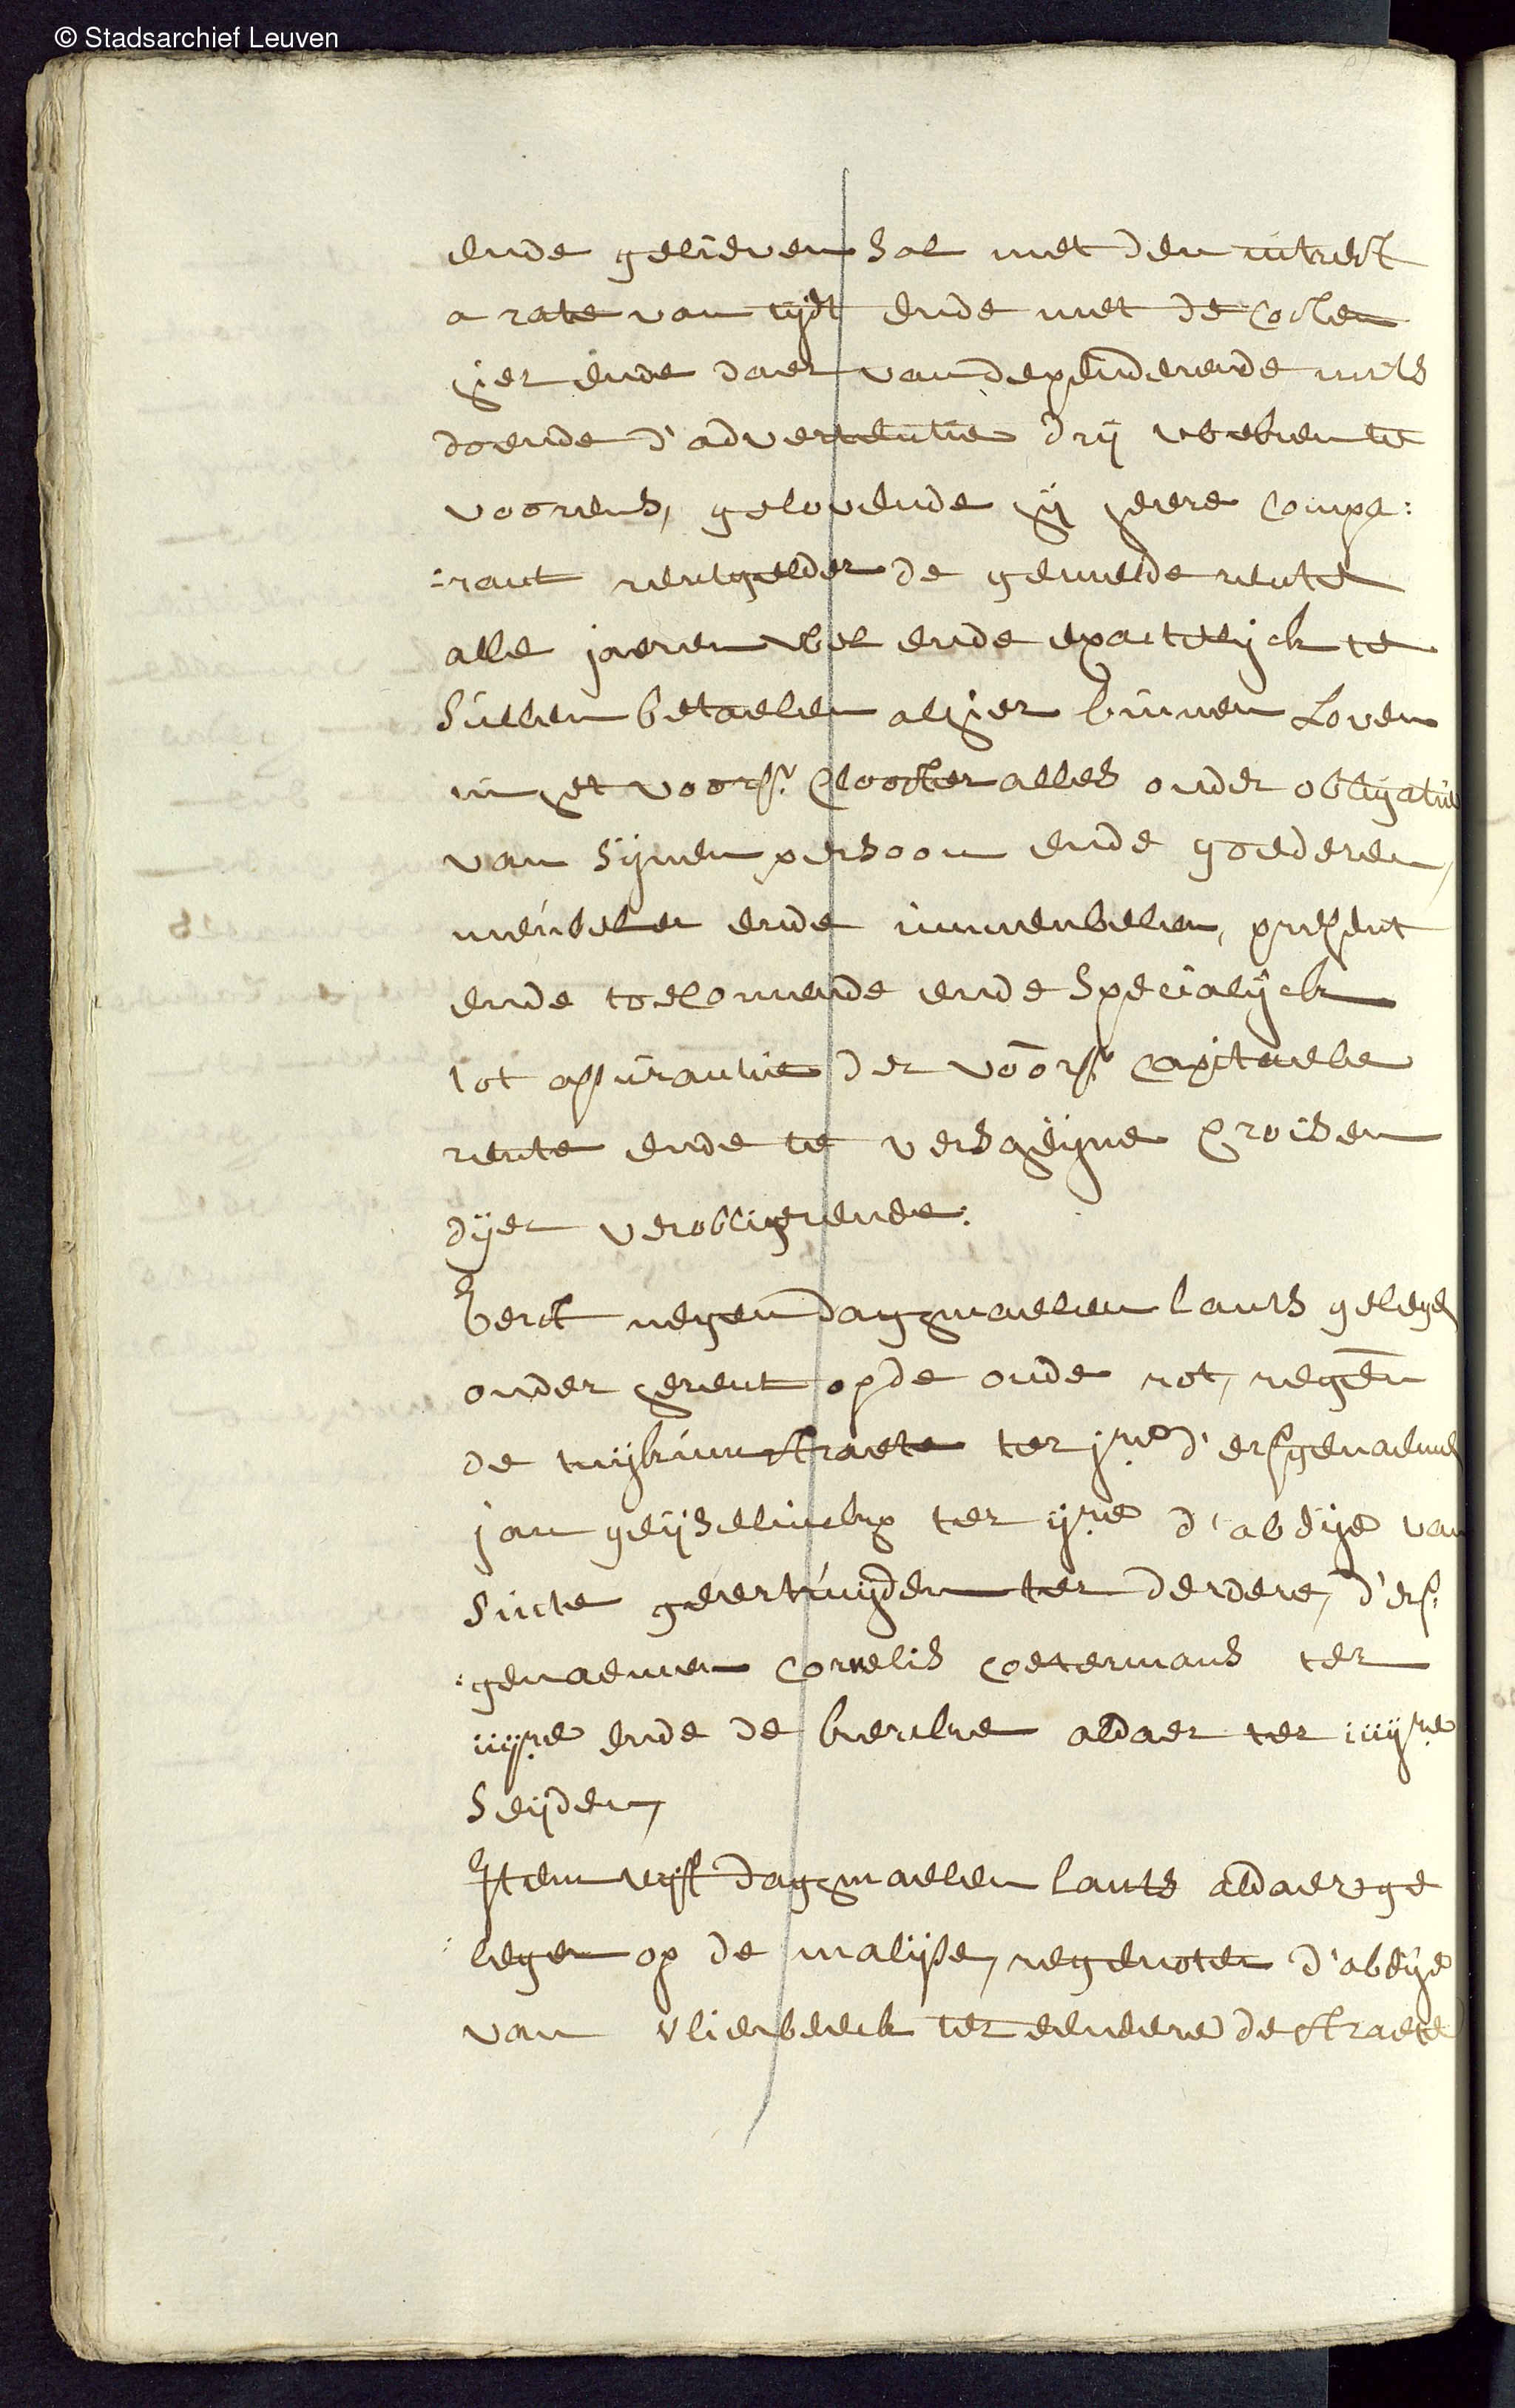 © Stadsarchief Leuven
ende gelieven sal met den intrest
a rate van tijdt ende met de costen
hier ende daer van dependerende mits
doende d'advertentie drij weken te
voorens, gelovende hij heere compa:
:rant rentgelder de gemelde rente
alle jaeren wel ende exactelijck te
sullen betaelen alhier binnen Loven
in het voors. Clooster alles onder obligatie
van sijnen persoon ende goederen,
meubelen ende immeubelen, present
ende toecomende ende specialijck
tot assurantie der voors. capitaele
rente ende te verschijne croisen
dijer verobligerende.
Eerst negen dagmaelen lants gelegen
onder herent opde oude rot, regen.
de straete ter j.re d'erfgenaemen
jan geijselincks ter ij.re d'abdije van
sinte geertruijden ter derdere, d'erf:
:genaemen Cornelis Coetermans ter
iiij.re ende de kercke aldaer ter iiij.re
seijden,
Item vijff dagmaelen lants aldaer ge
legen op de malijse, regenoten d'abdije
van vlierbeeck ter eendere de straete